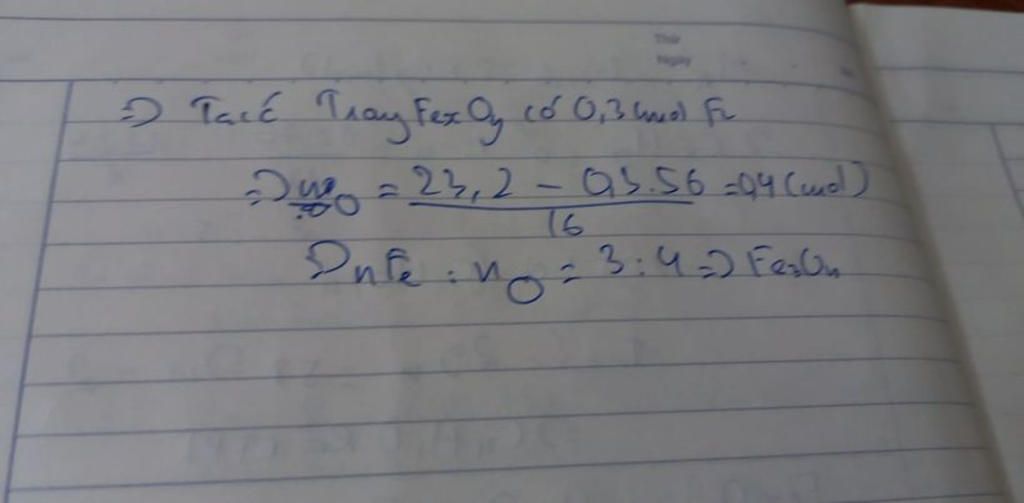 Thứ
Ngày
=> Ta có Trong FexOy có 0,3 mol Fe
=> nO = 23,2 - 0,3.56 / 16 = 0,4 (mol)
=> nFe : nO = 3 : 4 => Fe3O4